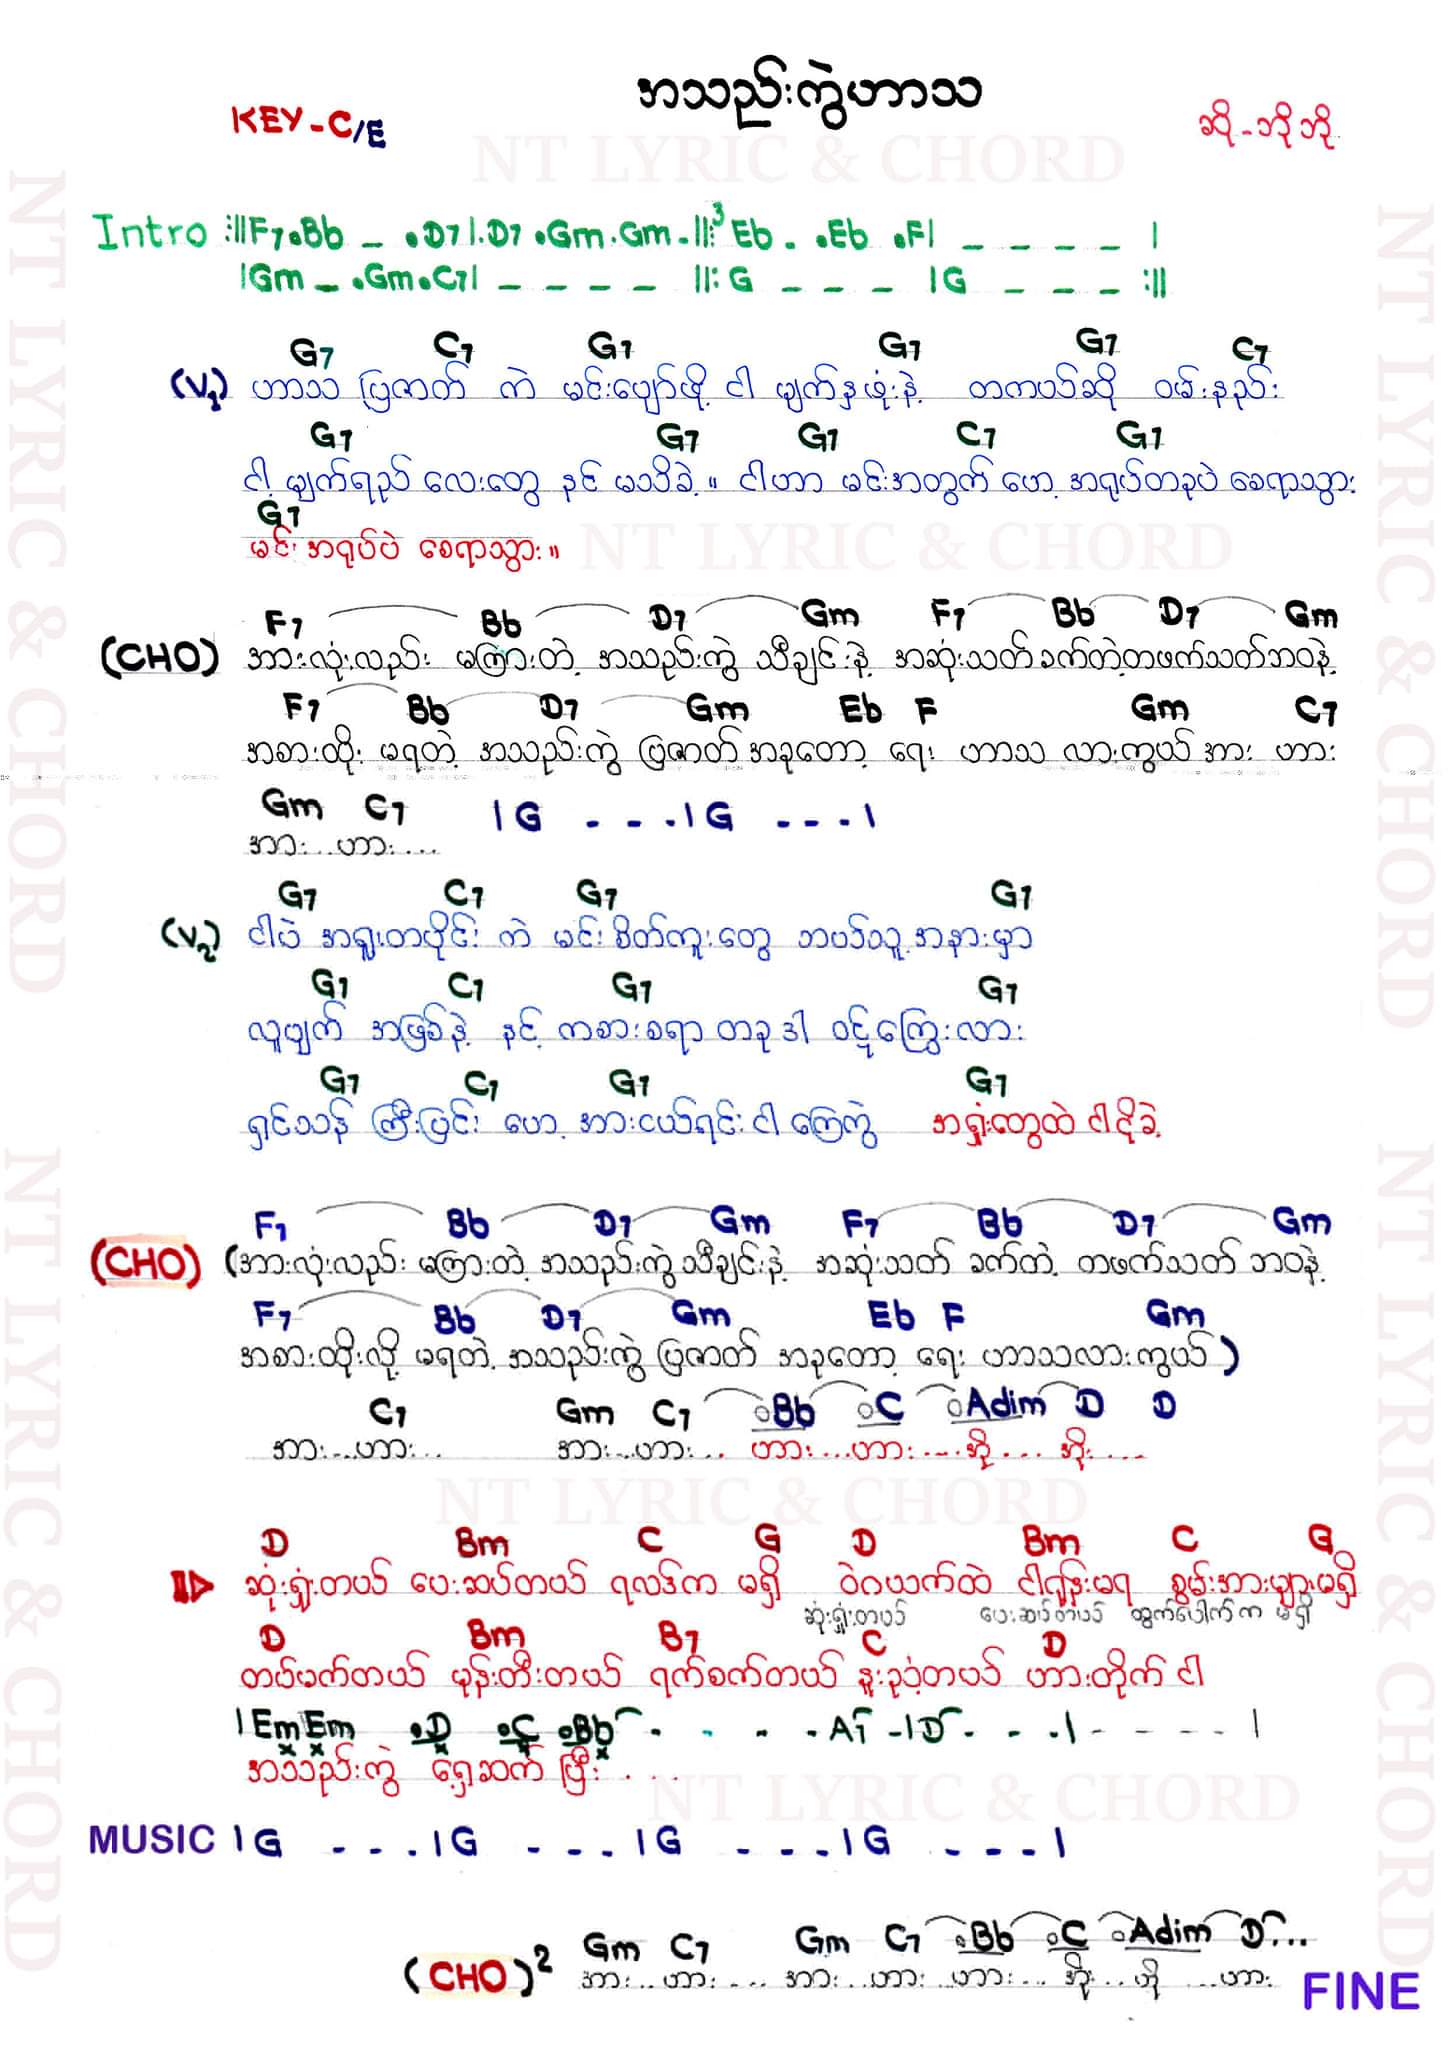 အသည်းကွဲဟာသ
KEY - C/E
ဆို - ဘိုဘို
NT LYRIC & CHORD
Intro :||F7.Bb _ .D7|.D7 .Gm.Gm.||:3 Eb . .Eb .F| _ _ _ _ |
|Gm _ .Gm.C7| _ _ _ _ ||: G _ _ _ |G _ _ _ :||
G7 C7 G7 G7 G7 C7
(V1) ဟာသ ပြဇာတ် ကဲ မင်းပျော်ဖို့ ငါ မျက်နှာဖုံးနဲ့ တကယ်ဆို ဝမ်းနည်း
G7 G7 G7 C7 G7
ငါ့ မျက်ရည် လေးတွေ နင် မသိခဲ့။ ငါဟာ မင်းအတွက် ဟော့ အရုပ်တခုပဲ စေရာသွား
G7
မင်း အရုပ်ပဲ စေရာသွား။
NT LYRIC & CHORD
F7 Bb D7 Gm F7 Bb D7 Gm
(CHO) အားလုံးလည်း မကြားတဲ့ အသည်းကွဲ သီချင်းနဲ့ အဆုံးသတ် ခက်တဲ့တဖက်သတ်ဘဝနဲ့
F7 Bb D7 Gm Eb F Gm C7
အစားထိုး မရတဲ့ အသည်းကွဲ ပြဇာတ် အခုတော့ ရေး ဟာသ လားကွယ် အား ဟား
Gm C7 |G - - - .|G - - - . |
အား...ဟား...
G7 C7 G7 G7
(V2) ငါပဲ အရူးတပိုင်း ကဲ မင်းစိတ်ကူးတွေ ဘယ်သူ့အနားမှာ
G7 C7 G7 G7
လူဗျက် အဖြစ်နဲ့ နင့် ကစားစရာ တခု ဒါ ဝဋ်ကြွေးလား
G7 C7 G7 G7
ရှင်သန် ကြီးပြင်း ဟော့ အားငယ်ရင်း ငါ ကြေကွဲ အရှုံးတွေထဲ ငါဋိခဲ့
F7 Bb D7 Gm F7 Bb D7 Gm
(CHO) (အားလုံးလည်း မကြားတဲ့ အသည်းကွဲ သီချင်းနဲ့ အဆုံးသတ် ခက်တဲ့ တဖက်သတ် ဘဝနဲ့
F7 Bb D7 Gm Eb F Gm
အစားထိုးလို့ မရတဲ့ အသည်းကွဲ ပြဇာတ် အခုတော့ ရေး ဟာသလားကွယ် )
C7 Gm C7 Bb C Adim D D
အား...ဟား... အား...ဟား... ဟား...ဟား....အို.... အိုး....
NT LYRIC & CHORD
D Bm C G D Bm C G
ဆုံးရှုံးတယ် ပေးဆပ်တယ် ရလဒ်က မရှိ ဝဲဂယက်ထဲ ငါရုန်းမရ စွမ်းအားများမရှိ
ဆုံးရှုံးတယ် ပေးဆပ်တယ် ထွက်ပေါက်က မရှိ
D Bm B7 C D
တပ်မက်တယ် မုန်းတီးတယ် ရက်စက်တယ် နူးညံ့တယ် ဟားတိုက် ငါ
|Em Em D C Bb - . - . - . A7 - |D - . - . - . | - - - - |
အသည်းကွဲ ရှေ့ဆက် ပြီး....
NT LYRIC & CHORD
MUSIC |G _ _ . |G _ _ . |G _ _ . |G _ _ . |
Gm C7 Gm C7 Bb C Adim D...
(CHO)2 အား...ဟား... အား...ဟား...ဟား... အိုး...ဟို ...ဟား
FINE
NT LYRIC & CHORD
NT LYRIC & CHORD
NT LYRIC & CHORD
NT LYRIC & CHORD